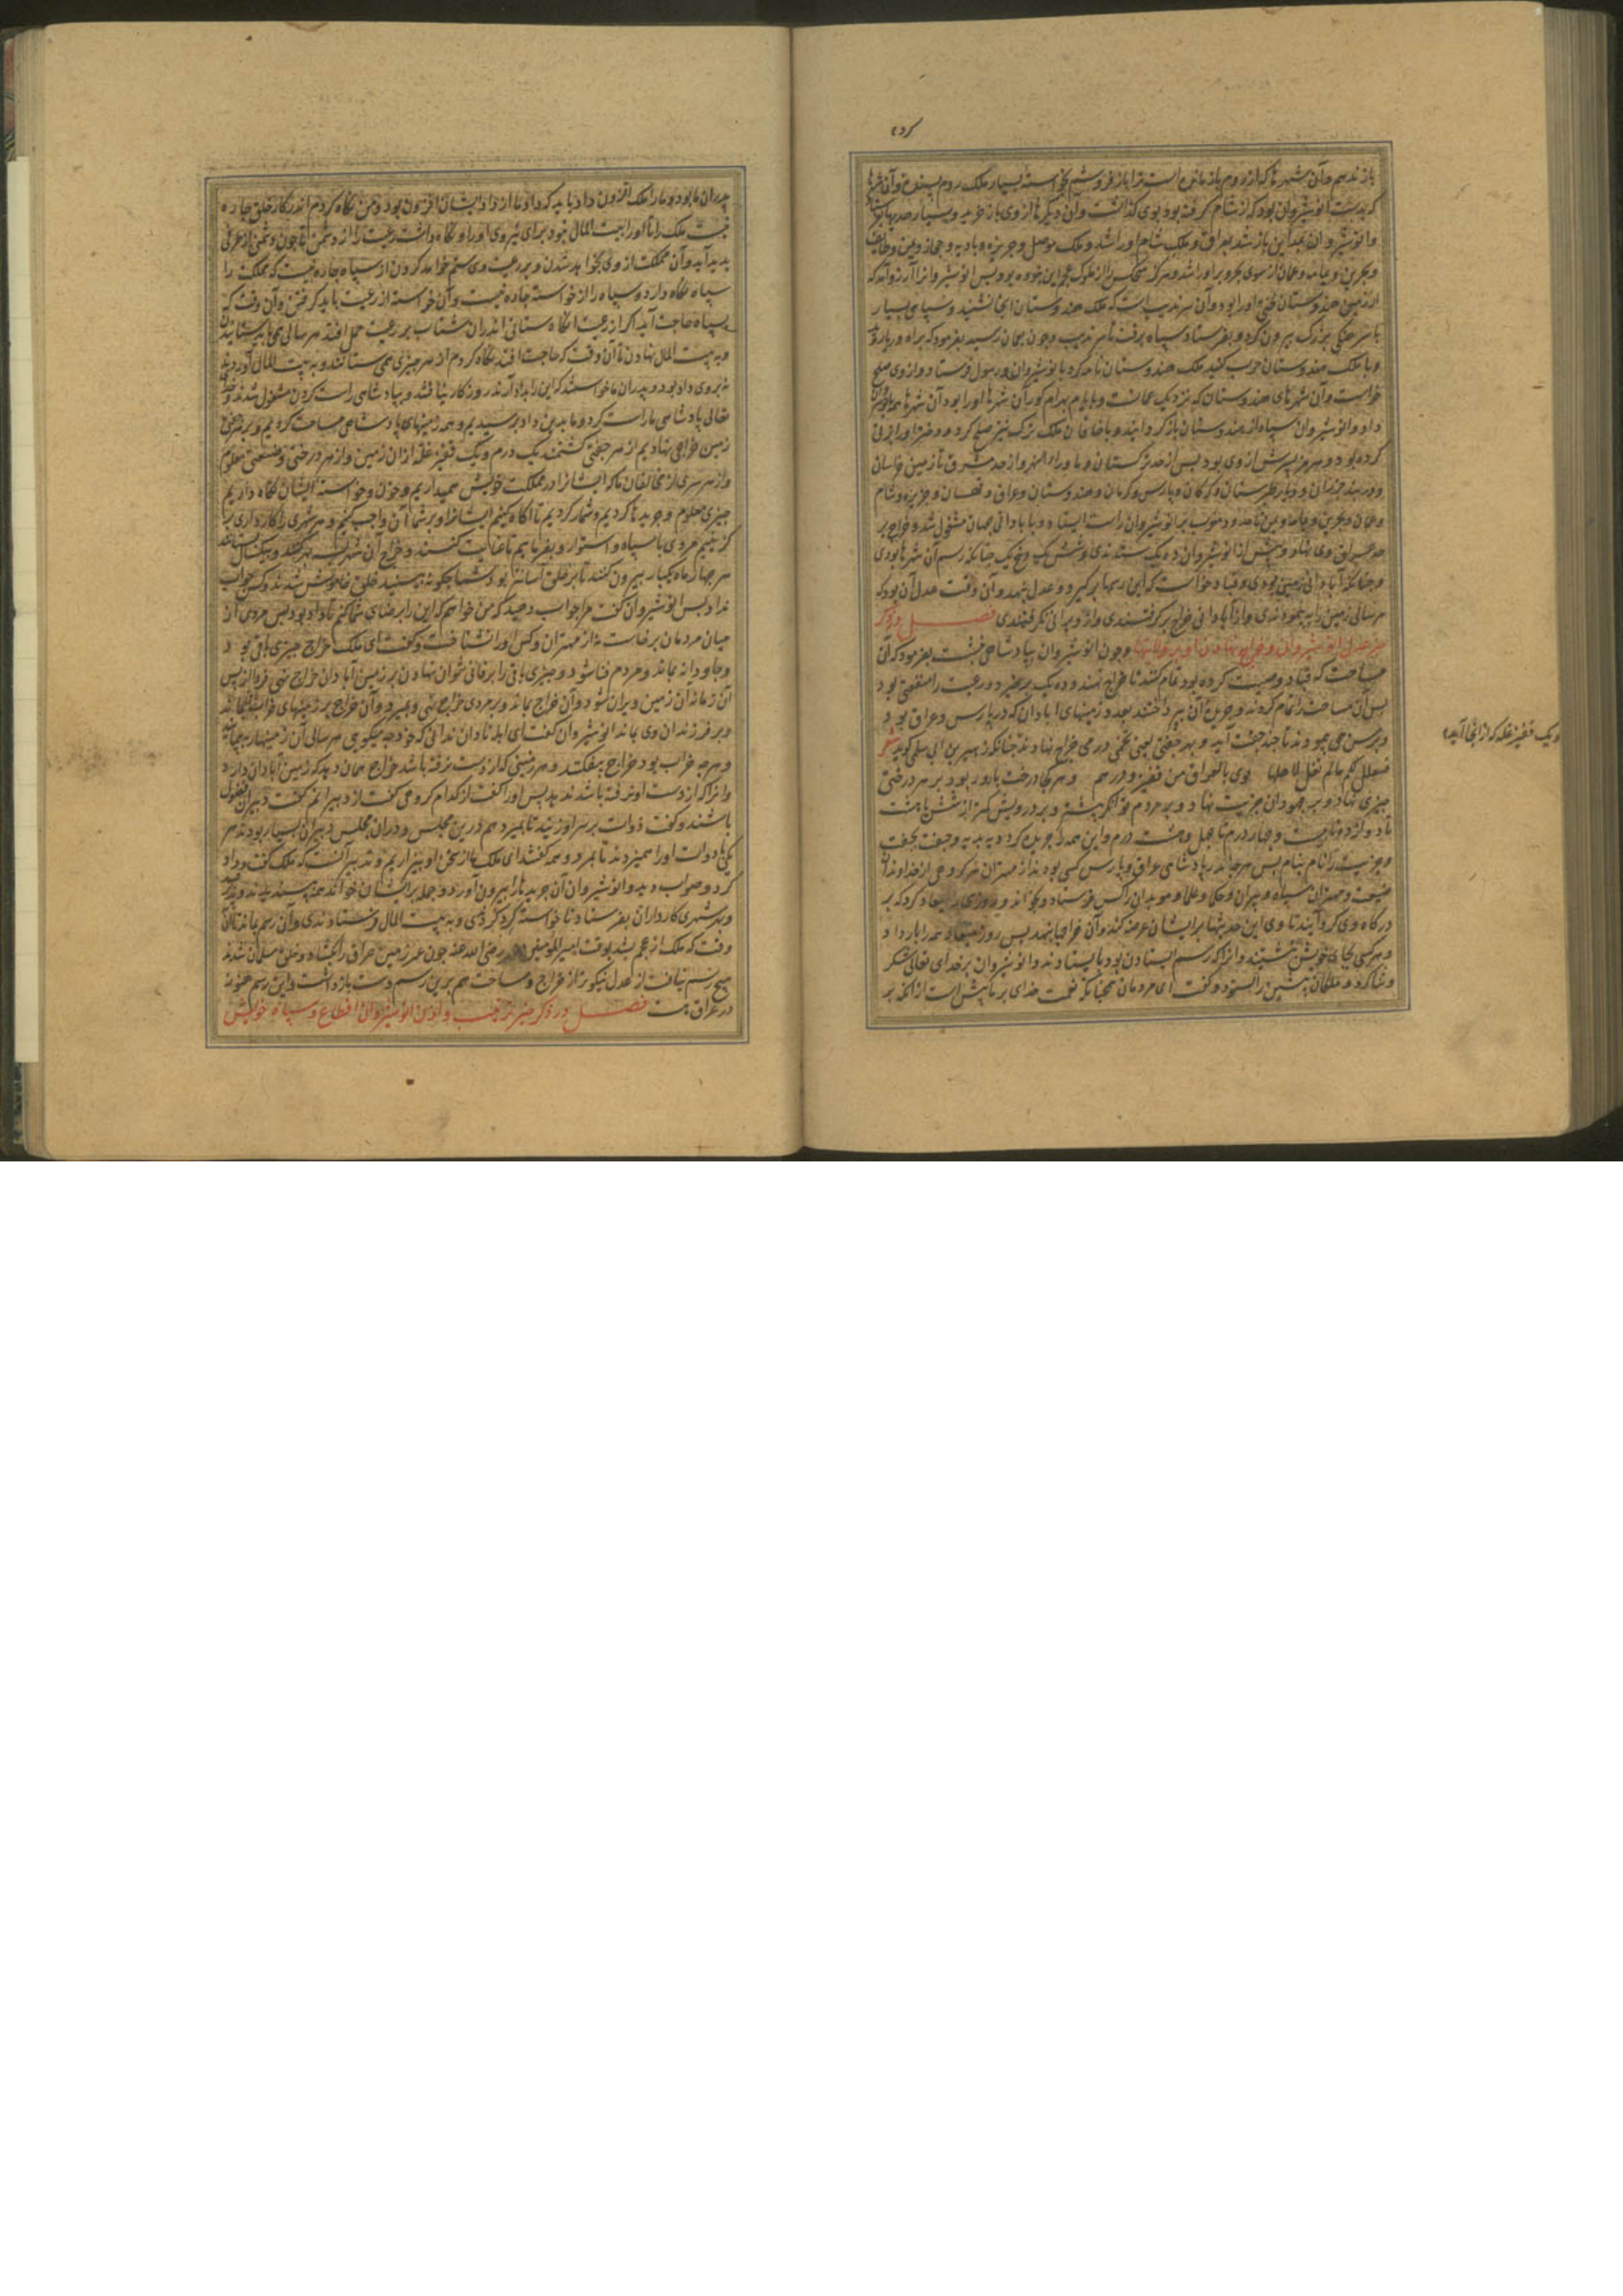 کرد
باز ندهم و آن شهرها که از روم باز مانده است ترا باز فروشم بخواسته بسیار ملک روم پسندید و آن شهرها
که بدست انوشیروان بود که از شام گرفته بود بوی گذاشت و آن دیگرها از وی باز خرید و بسیار هدیها
وانوشیروان بمداین باز شد بعراق و ملک شام اورا شد و ملک موصل و جزیره و بادیه و حجاز و یمن و طایف
و بحرین و یمامه و عمان از سوی بحر و بر اورا شد و هرگز هیچکس را از ملوک عجم این نبوده بود پس انوشیروانرا آرزو آمد که
از زمین هندوستان لختی اورا بود و آن سرندیب است که ملک هندوستان آنجا نشیند و سپاهی بسیار
با سرهنگی بزرگ بیرون کرد و بفرستاد سپاه برفت تا سرندیب و چون بعمان رسید بفرمود که براه دریا رود
و با ملک هندوستان حرب کنید ملک هندوستان نامه کرد بانوشیروان و رسول فرستاد و از وی صلح
خواست و آن شهرهای هندوستان که نزدیک عمانست و بایام بهرام گور آن شهرها اورا بود آن شهرها همه بانوشیروان
داد و انوشیروان سپاه از هندوستان باز گردانید و با خاقان ملک ترک نیز صلح کرد و دختر اورا بزنی
کرده بود و هرمز پسرش از وی بود پس از حد ترکستان و ماوراء النهر و از حد مشرق تا زمین خراسان
و دربند خزران و دیار طبرستان و گرگان و پارس و کرمان و هندوستان و عراق و قهستان و جزیره و شام
و عمان و بحرین و یمامه و یمن تا حدود مغرب بر انوشیروان راست ایستاد و با بادانی جهان مشغول شد و خراج بر
حد عراق وی نهاد و پیش از انوشیروان ده یک ستدندی و شش یک و پنج یک چنانکه رسم آن شهرها بودی
و چنانکه آبادانی زمین بودی و قباد خواست که این رسمها برگیرد و عدل نهد و آن وقت عدل آن بود که
هر سالی زمین را بپیمودندی و از آبادانی خراج برگرفتندی و از ویرانی نگرفتندی فصل در ذکر
خبر عدل انوشیروان و خراج نهادن او بر ولایتها و چون انوشیروان بپادشاهی نشست بفرمود که آن
مساحت که قباد وصیت کرده بود تمام کنند تا خراج نهند و ده یک برخیزد و رعیت را منفعتی بود
پس آن مساحت را تمام کردند و جریده آن بپرداختند بعدد زمینهای آبادان که در پارس و عراق بود و
و برسن می پیمودند تا چند جفت آید و بهر جفتی درمی خراج نهادند چنانکه زهیر بن ابی سلمی گوید شعر
فتغلل لکم مالم تغل لاهلها قری بالعراق من قفیز و درهم و هر کجا درخت بارور بود بر هر درختی
چیزی نهاد و بر جهودان جزیت نهاد و بر مردم توانگر بیشتر و بر درویش کمتر از شش تا هشت
تا دوازده تا بیست و چهار درم تا چهل و هشت درم و این همه را جریده کرد دیه بدیه و جفت بجفت
و جزیت را نام بنام پس هر چه اندر پادشاهی عراق و پارس کسی بودند از مهتران هر گروهی از خداوندان
ضیعت و مهتران سپاه و پیران و حکما و علما و موبدان کس فرستاد و بخواند و روزی میعاد کرد که بر
درگاه وی گرد آیند تا وی این حدیثها بر ایشان عرضه کند و آن خراجها بنهد پس روز میعاد همه را بار داد
و هر کسی بجای خویش بنشستند و انرا که رسم ایستادن بود بایستادند و انوشیروان بر خدای تعالی شکر
و ثنا کرد و ملکان پیشین را بستود و گفت ای مردمان همچنانکه نعمت خدای بر ما بیش است از آنکه بر
و یک قفیز غله که از آنجا آید
پدران ما بود و ما را ملک افزون داد باید که داد ما از داد ایشان افزون بود و من نگاه کردم اندر کار خلق چاره
نیست ملک را تا اورا بیت المال نبود برای نیروی اورا و نگاه داشت رعیت را از دشمن تا چون دشمن از طرفی
پدید آید و آن مملکت از وی بخواهد شدن و بر رعیت وی ستم خواهد کردن از سپاه چاره نیست که مملکت را
سپاه نگاه دارد و سپاه را از خواسته چاره نیست و آن خواسته از رعیت باید گرفتن و آن وقت که
بسپاه حاجت آید اگر از رعیت آنگاه ستانی اندر ان شتاب بر رعیت حمل افتد هر سالی می باید ستانیدن
و به بیت المال نهادن تا آن وقت که حاجت افتد نگاه کردم از هر چیزی همی ستانند و به بیت المال آوردند
نه بروی داد بود و پدران ما خواستند که این را بداد آرند روزگار نیافتند و بپادشاهی راست کردن مشغول شدند و خدای
تعالی پادشاهی ما راست کرد و ما بدین داد برسیدیم و همه زمینهای پادشاهی مساحت کردیم و بر هر جفتی
زمین خراجی نهادیم از هر جفتی کشتمند یک درم و یک قفیز غله از ان زمین و از هر درختی وضیعتی معلوم
و از هر سری از مخالفان ما که ایشانرا در مملکت خویش همیداریم و خون و خواسته ایشان نگاه داریم
چیزی معلوم و جریدها کردیم و شمار کردیم تا آگاه کنیم ایشانرا و بر شما آن واجب کنیم و هر شهری را کارداری بر
گزینیم مردی با سپاه و استوار و بفرماییم تا عنایت کنند و خراج آن شهر بستانند و بیک سال بستانند
هر چهار ماه یکبار بیرون کنند تا بر خلق آسانتر بود شما چگونه بینید خلق خاموش شدند و کس جواب
نداد پس انوشیروان گفت مرا جواب دهید که من خواهم که این را برضای شما کنم تا داد بود پس مردی از
میان مردمان برخاست نه از مهتران و کس اورا نشناخت و گفت ای ملک خراج چیزی باقی بود
و جاودانه بماند و مردم فنا شود و چیزی باقی را بر فانی نتوان نهادن بر زمین آبادان خراج نهی فردا از پس
آن زمانه ان زمین ویران شود و آن خراج بماند و بر مردی خراج نهی و بمیرد و آن خراج بر زمینهای خراب بماند
و بر فرزندان وی بماند انوشیروان گفت ای ابله نادان ندانی که خود چه میگویی هر سالی آن زمینها بپیمایند
و هر چه خراب بود خراج بیفکنند و هر زمینی که از دست برفته باشد خراج همان دهد که زمین آبادان دارد
و انرا که از دست او نرفته باشد ندهد پس اورا گفت از کدام گروهی گفت از دبیرانم گفت دبیران فضول
باشند و گفت دوات بر سر او زنید تا بمیرد هم درین مجلس و دران مجلس دبیران بسیار بودند هر
یکی با دوات اورا همیزدند تا بمرد و همه گفتند ای ملک ما از سخن او بیزاریم و تدبیر آنست که ملک گفت و داد
کرد و صواب دید و انوشیروان آن جریدها را بیرون آورد و جمله بر ایشان خواند همه پسندیدند
و بهر شهری کارداران بفرستاد تا خواسته گرد کردی و به بیت المال فرستادندی و آن رسم بماند تا آن
وقت که ملک از عجم بشد بوقت امیر المومنین عمر رضی الله عنه چون عمر زمین عراق را بگشاد و خلق مسلمان شدند
هیچ رسم نیافت از عدل نیکوتر از خراج و مساحت هم برین رسم دست بازداشت و این رسم هنوز
در عراق هست فصل در ذکر خبر ترتیب و دادن انوشیروان اقطاع و سپاه خویش